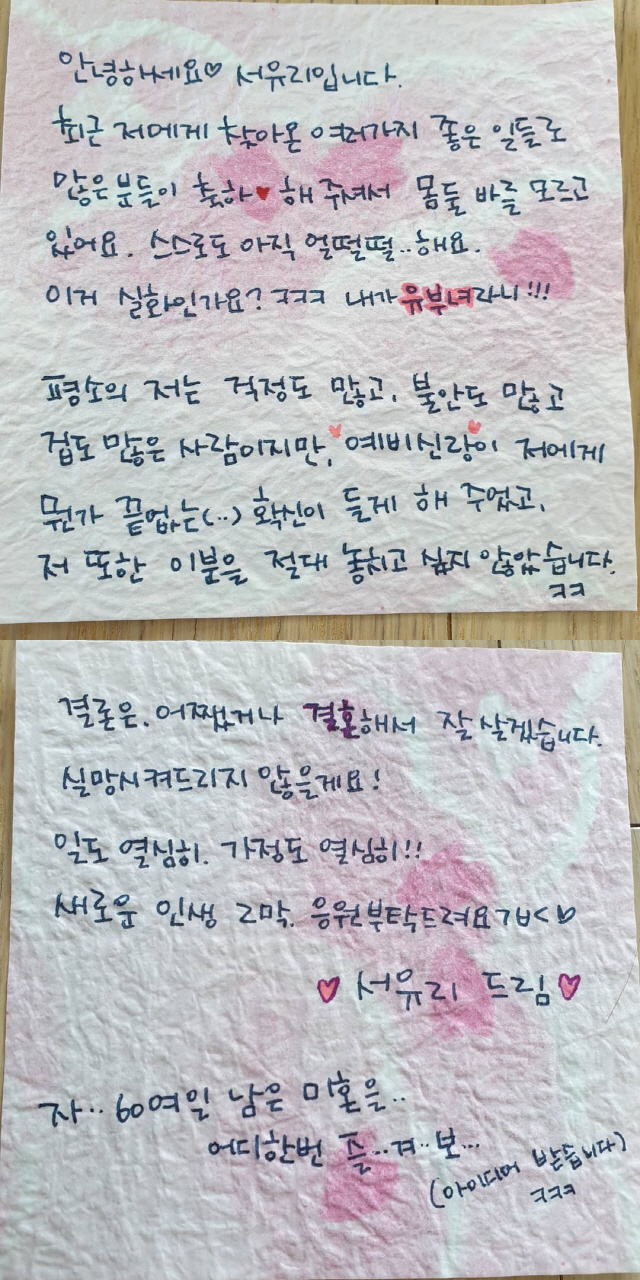 안녕하세요♡ 서유리입니다.
최근 저에게 찾아온 여러가지 좋은 일들로
많은분들이 축하♥해 주셔서 몸둘 바를 모르고
있어요. 스스로도 아직 얼떨떨..해요.
이거 실화인가요? ㅋㅋㅋ 내가 유부녀라니!!!
평소의 저는 걱정도 많고, 불안도 많고
겁도 많은 사람이지만, 예비신랑이 저에게
뭔가 끝없는(..) 확신이 들게 해 주었고,
저 또한 이분을 절대 놓치고 싶지 않았습니다.
ㅋㅋ
결론은, 어쨌거나 결혼해서 잘 살겠습니다.
실망시켜드리지 않을게요!
일도 열심히. 가정도 열심히!!
새로운 인생 2막. 응원부탁드려요
♥ 서유리 드림 ♥
자.. 60여일 남은 미혼을..
어디한번 즐..겨..보...
(아이디어 받습니다)
ㅋㅋㅋ